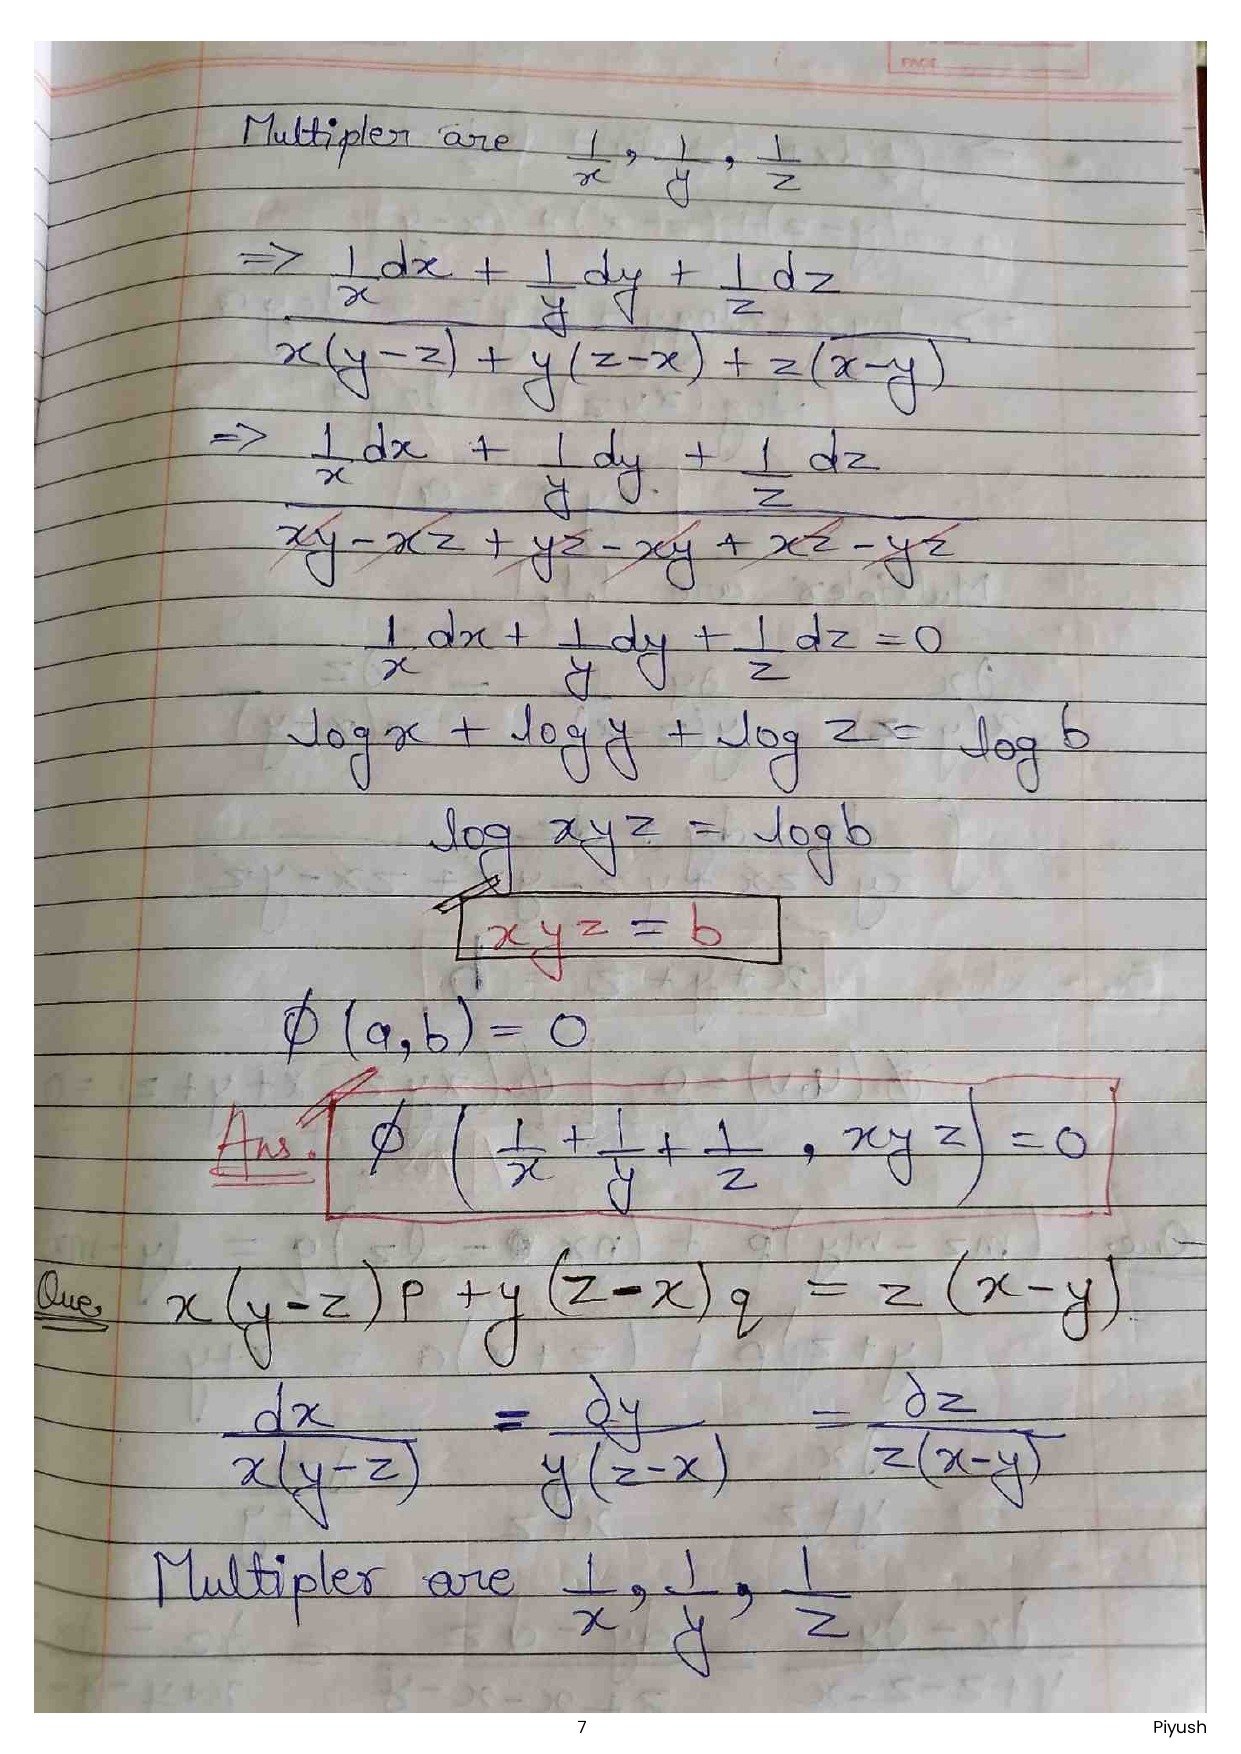 PAGE
Multipler are 1/x, 1/y, 1/z
=> (1/x dx + 1/y dy + 1/z dz) / (x(y-z) + y(z-x) + z(x-y))
=> (1/x dx + 1/y dy + 1/z dz) / (xy - xz + yz - xy + xz - yz)
1/x dx + 1/y dy + 1/z dz = 0
log x + log y + log z = log b
log xyz = log b
xyz = b
ϕ (a,b) = 0
Ans. ϕ (1/x + 1/y + 1/z , xyz) = 0
Que. x(y-z)p + y(z-x)q = z(x-y)
dx/(x(y-z)) = ∂y/(y(z-x)) = ∂z/(z(x-y))
Multipler are 1/x, 1/y, 1/z
7 Piyush